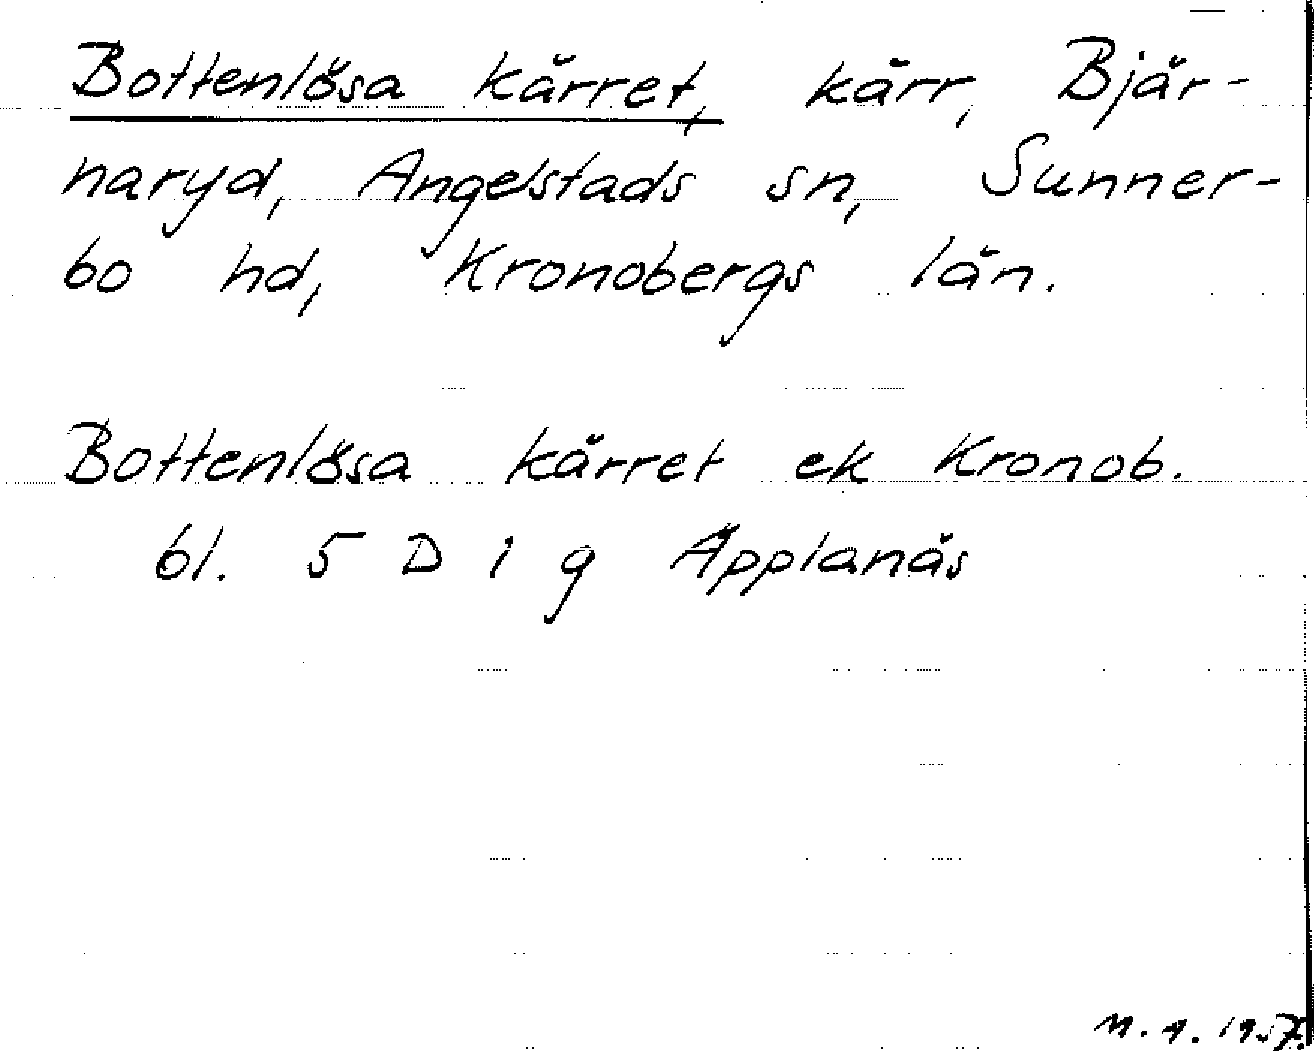 Bottenlösa kärret, kärr, Bjär-
naryd, Angelstads sn, Sunner-
bo hd, Kronobergs län.
Bottenlösa kärret ek Kronob.
bl. 5 D 1 g Äpplanäs
1957.